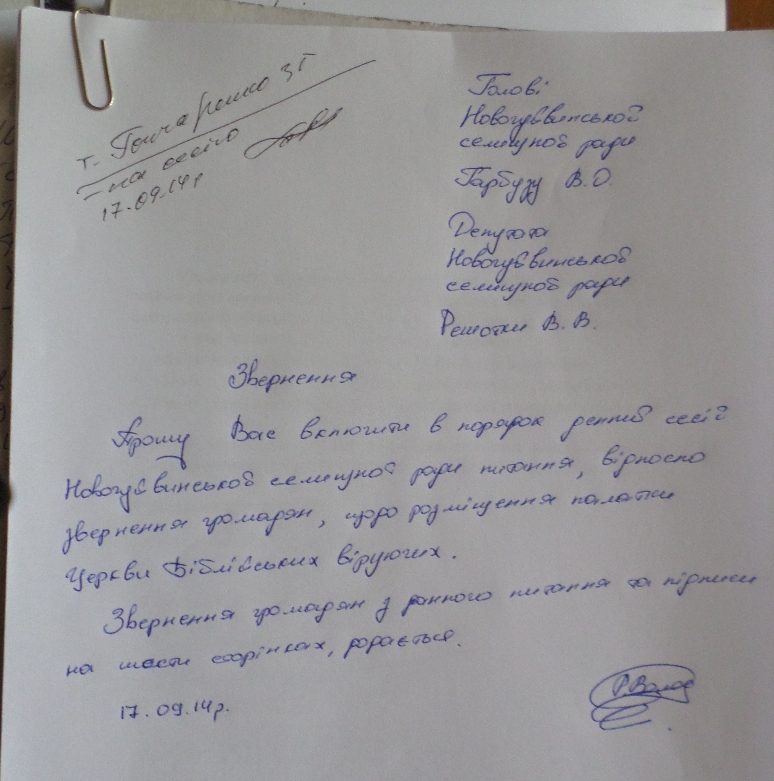 т. Гончаренко ЗГ
– на сесію
17.09.14р
Голові
Новогуйвинської
селищної ради
Гарбузу В.О.
Депутата
Новогуйвинської
селищної ради
Решотки В.В.
Звернення
Прошу Вас включити в порядок денний сесії
Новогуйвинської селищної ради питання, відносно
звернення громадян, щодо розміщення палатки
Церкви Біблійських віруючих.
Звернення громадян з данного питання та підписи
на шести сторінках, додається.
17.09.14р.